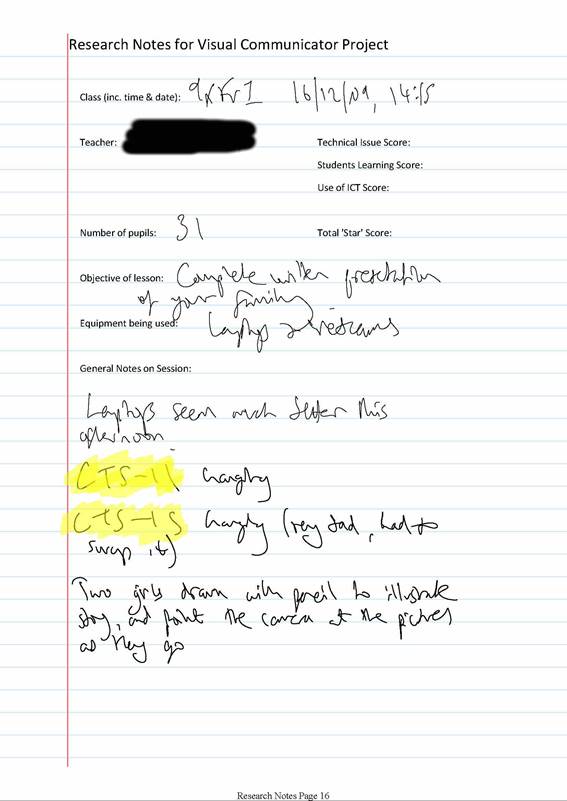 Research Notes for Visual Communicator Project
Class (inc. time & date): 9xFr1 16/12/09, 14:15
Teacher:
Technical Issue Score:
Students Learning Score:
Use of ICT Score:
Number of pupils: 31
Total 'Star' Score:
Objective of lesson: Complete written presentation
of your family
Equipment being used: Laptops & webcams
General Notes on Session:
Laptops seem much better this
afternoon.
CTS-11 hanging
CTS-15 hanging (very bad, had to
swap it)
Two girls drawn with pencil to illustrate
story, and point the camera at the pictures
as they go
Research Notes Page 16